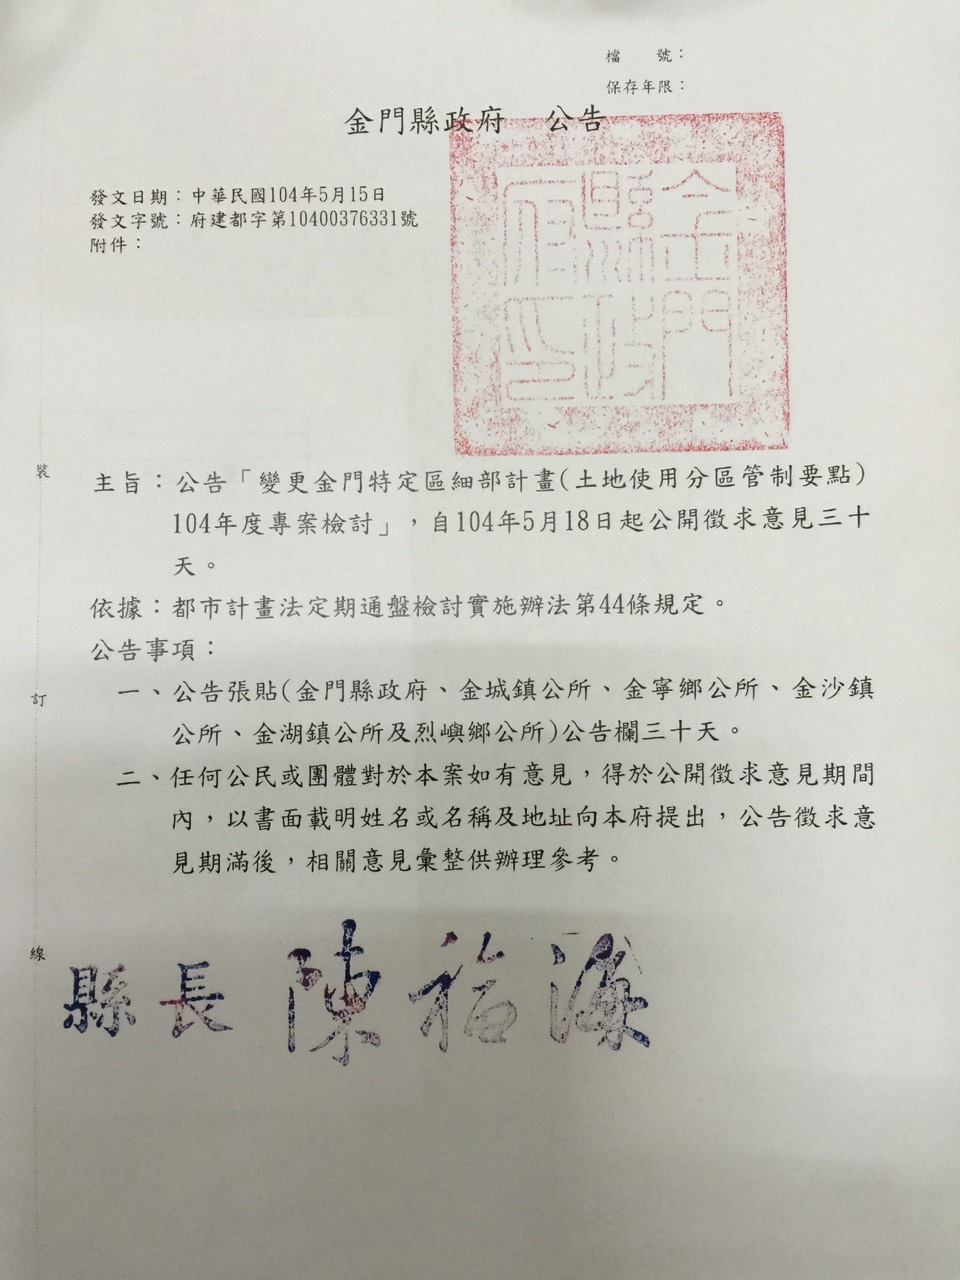 檔　　號：
保存年限：
金門縣政府　公告
發文日期：中華民國104年5月15日
發文字號：府建都字第10400376331號
附件：
金門縣政府印
主旨：公告「變更金門特定區細部計畫(土地使用分區管制要點)
104年度專案檢討」，自104年5月18日起公開徵求意見三十
天。
依據：都市計畫法定期通盤檢討實施辦法第44條規定。
公告事項：
一、公告張貼(金門縣政府、金城鎮公所、金寧鄉公所、金沙鎮
公所、金湖鎮公所及烈嶼鄉公所)公告欄三十天。
二、任何公民或團體對於本案如有意見，得於公開徵求意見期間
內，以書面載明姓名或名稱及地址向本府提出，公告徵求意
見期滿後，相關意見彙整供辦理參考。
縣長 陳福海
裝
訂
線